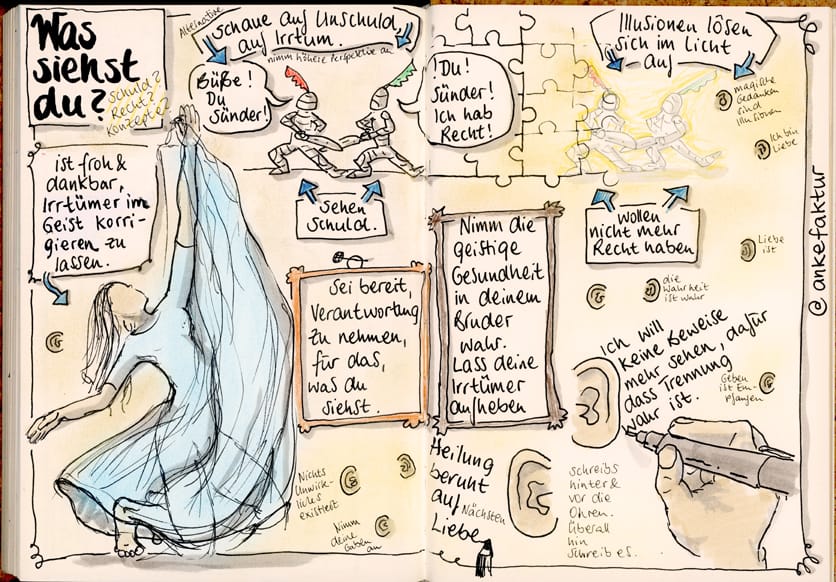 Was
siehst
du?
Schuld?
Recht?
Konzepte?
Alternative
schaue auf Unschuld,
auf Irrtum.
nimm höhere Perspektive an
Büße!
Du
Sünder!
ist froh &
dankbar,
Irrtümer im
Geist korri-
gieren zu
lassen.
Sehen
Schuld.
Sei bereit,
Verantwortung
zu nehmen,
für das,
was du
siehst.
Nichts
Unwirk-
liches
existiert
Nimm
deine
Gaben
an
Du!
Sünder!
Ich hab
Recht!
Illusionen lösen
sich im Licht
auf
magische
Gedanken
sind
Illusionen
Ich bin
Liebe
wollen
nicht mehr
Recht haben
Liebe
ist
die
Wahrheit
ist wahr
Nimm die
geistige
Gesundheit
in deinem
Bruder
wahr.
Lass deine
Irrtümer
aufheben
Ich will
keine Beweise
mehr sehen, dafür
dass Trennung
wahr ist.
Geben
ist Em-
pfangen
Heilung
beruht
auf
Nächsten
Liebe
schreibs
hinter &
vor die
Ohren.
Überall
hin
schreib es.
@ankefaktur